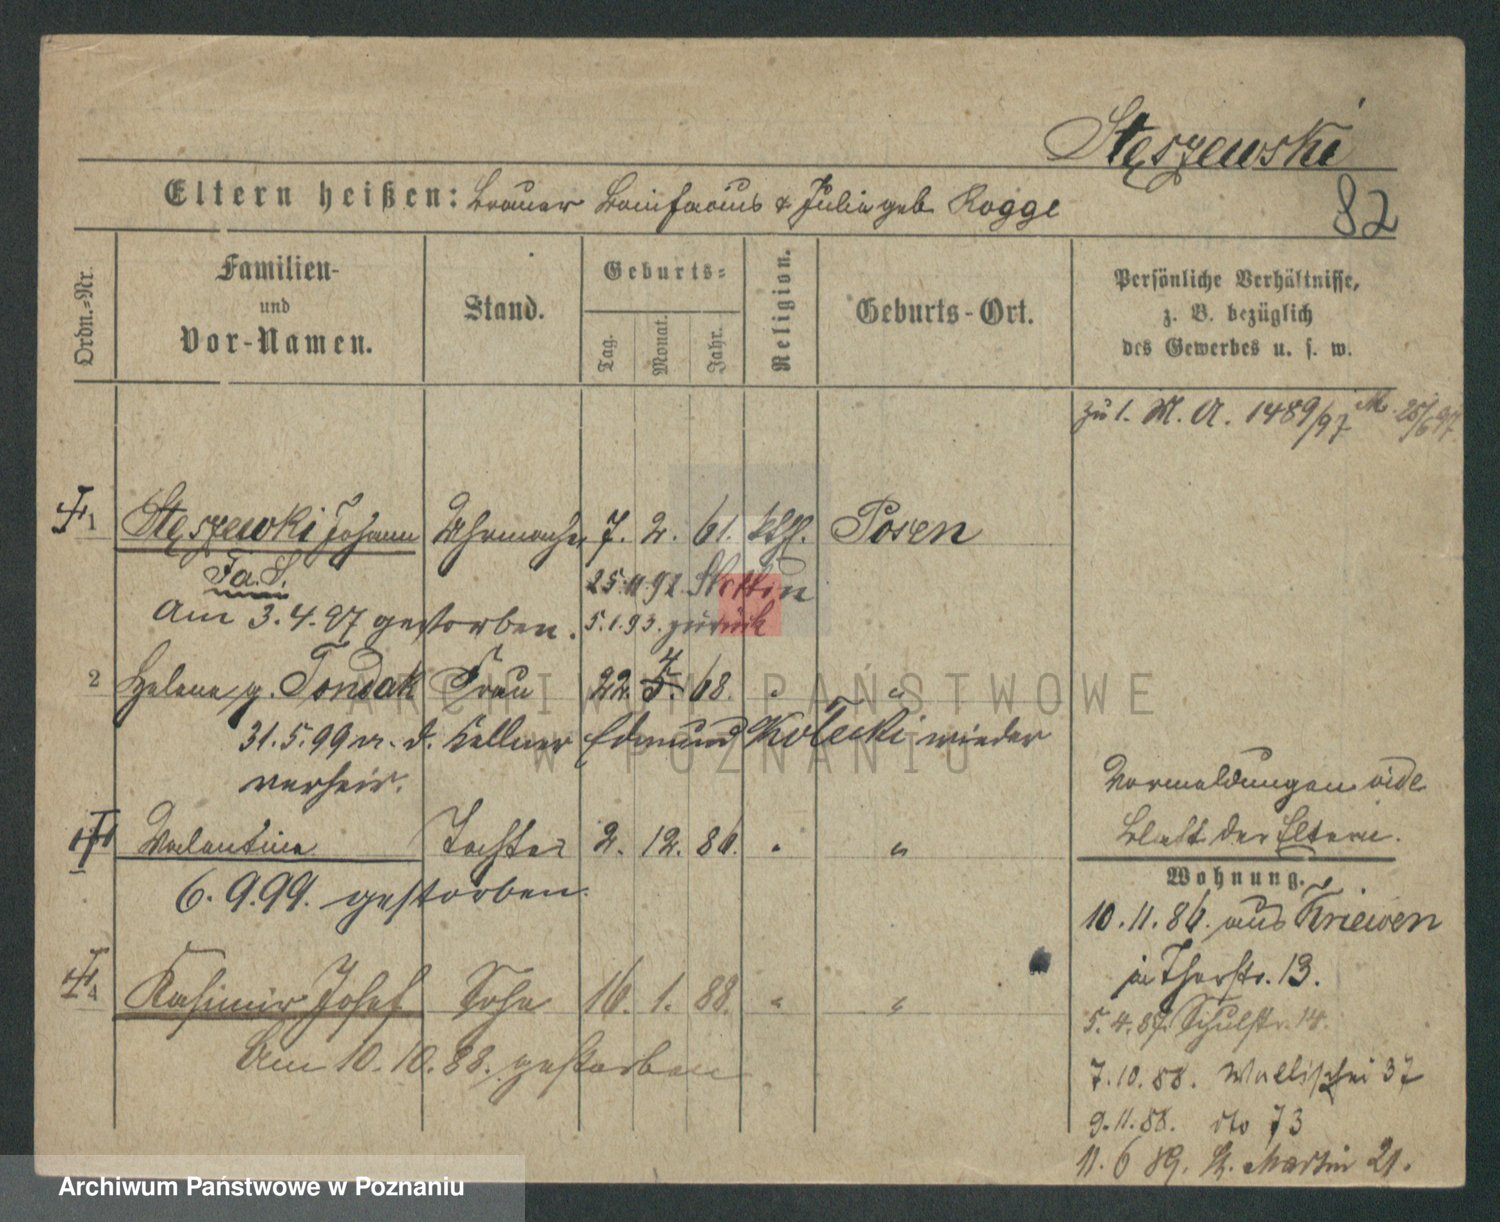 Stęszewski
82
Eltern heißen: Brauer Bonifacius & Julia geb Rogge
Ordn.-Nr.
Familien-
und
Vor-Namen.
Stand.
Geburts-
Tag.
Monat.
Jahr.
Religion.
Geburts-Ort.
Persönliche Verhältnisse,
z. B. bezüglich
des Gewerbes u. s. w.
zu 1. M. A. 1489/97 M. 25/6 97.
1 Stęszewski Johann Uhrmacher 7. 2. 61. kth. Posen
Fa. S. 25.11.92. Stettin
Am 3.4.97 gestorben. 5.1.93. zurück
2 Helene g. Tondak Frau 22. 5. 4. 68. " "
31.5.99 m. d. Kellner Edmund Kotecki wieder
verheir.
Valentine Tochter 2. 12. 86. " "
6.9.99. gestorben.
4 Kasimir Josef Sohn 16. 1. 88. " "
Am 10.10.88. gestorben
Vormeldungen vide
Blatt der Eltern.
Wohnung.
10.11.86. aus Kriewen
in Thorstr. 13.
5.4.87. Schulstr. 14.
7.10.88. Wallischei 37
9.11.88. dto 73
11.6 89. St. Martin 21.
ARCHIWUM PAŃSTWOWE
W POZNANIU
Archiwum Państwowe w Poznaniu